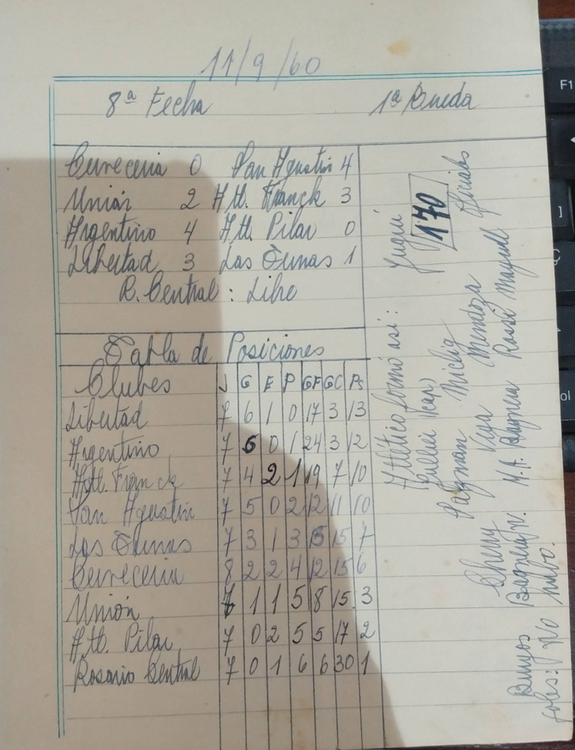 11/9/60
8ª Fecha 1ª Rueda
Cerveceria 0 San Agustin 4
Unión 2 Atl. Franck 3
Argentino 4 Atl. Pilar 0
Libertad 3 Las Tunas 1
R. Central : Libre
Tabla de Posiciones
Clubes J G E P GF GC Ps
Libertad 7 6 1 0 17 3 13
Argentino 7 6 0 1 24 3 12
Atl. Franck 7 4 2 1 19 7 10
San Agustin 7 5 0 2 12 11 10
Las Tunas 7 3 1 3 15 15 7
Cerveceria 8 2 2 4 12 15 6
Unión 7 1 1 5 8 15 3
Atl. Pilar 7 0 2 5 5 17 2
Rosario Central 7 0 1 6 6 30 1
Jugué 170 oficiales
Atlético formó así:
(cap)
Vega Mendoza
Chemy M.A. Rossi Miguel
Burgos
Goles: No hubo.